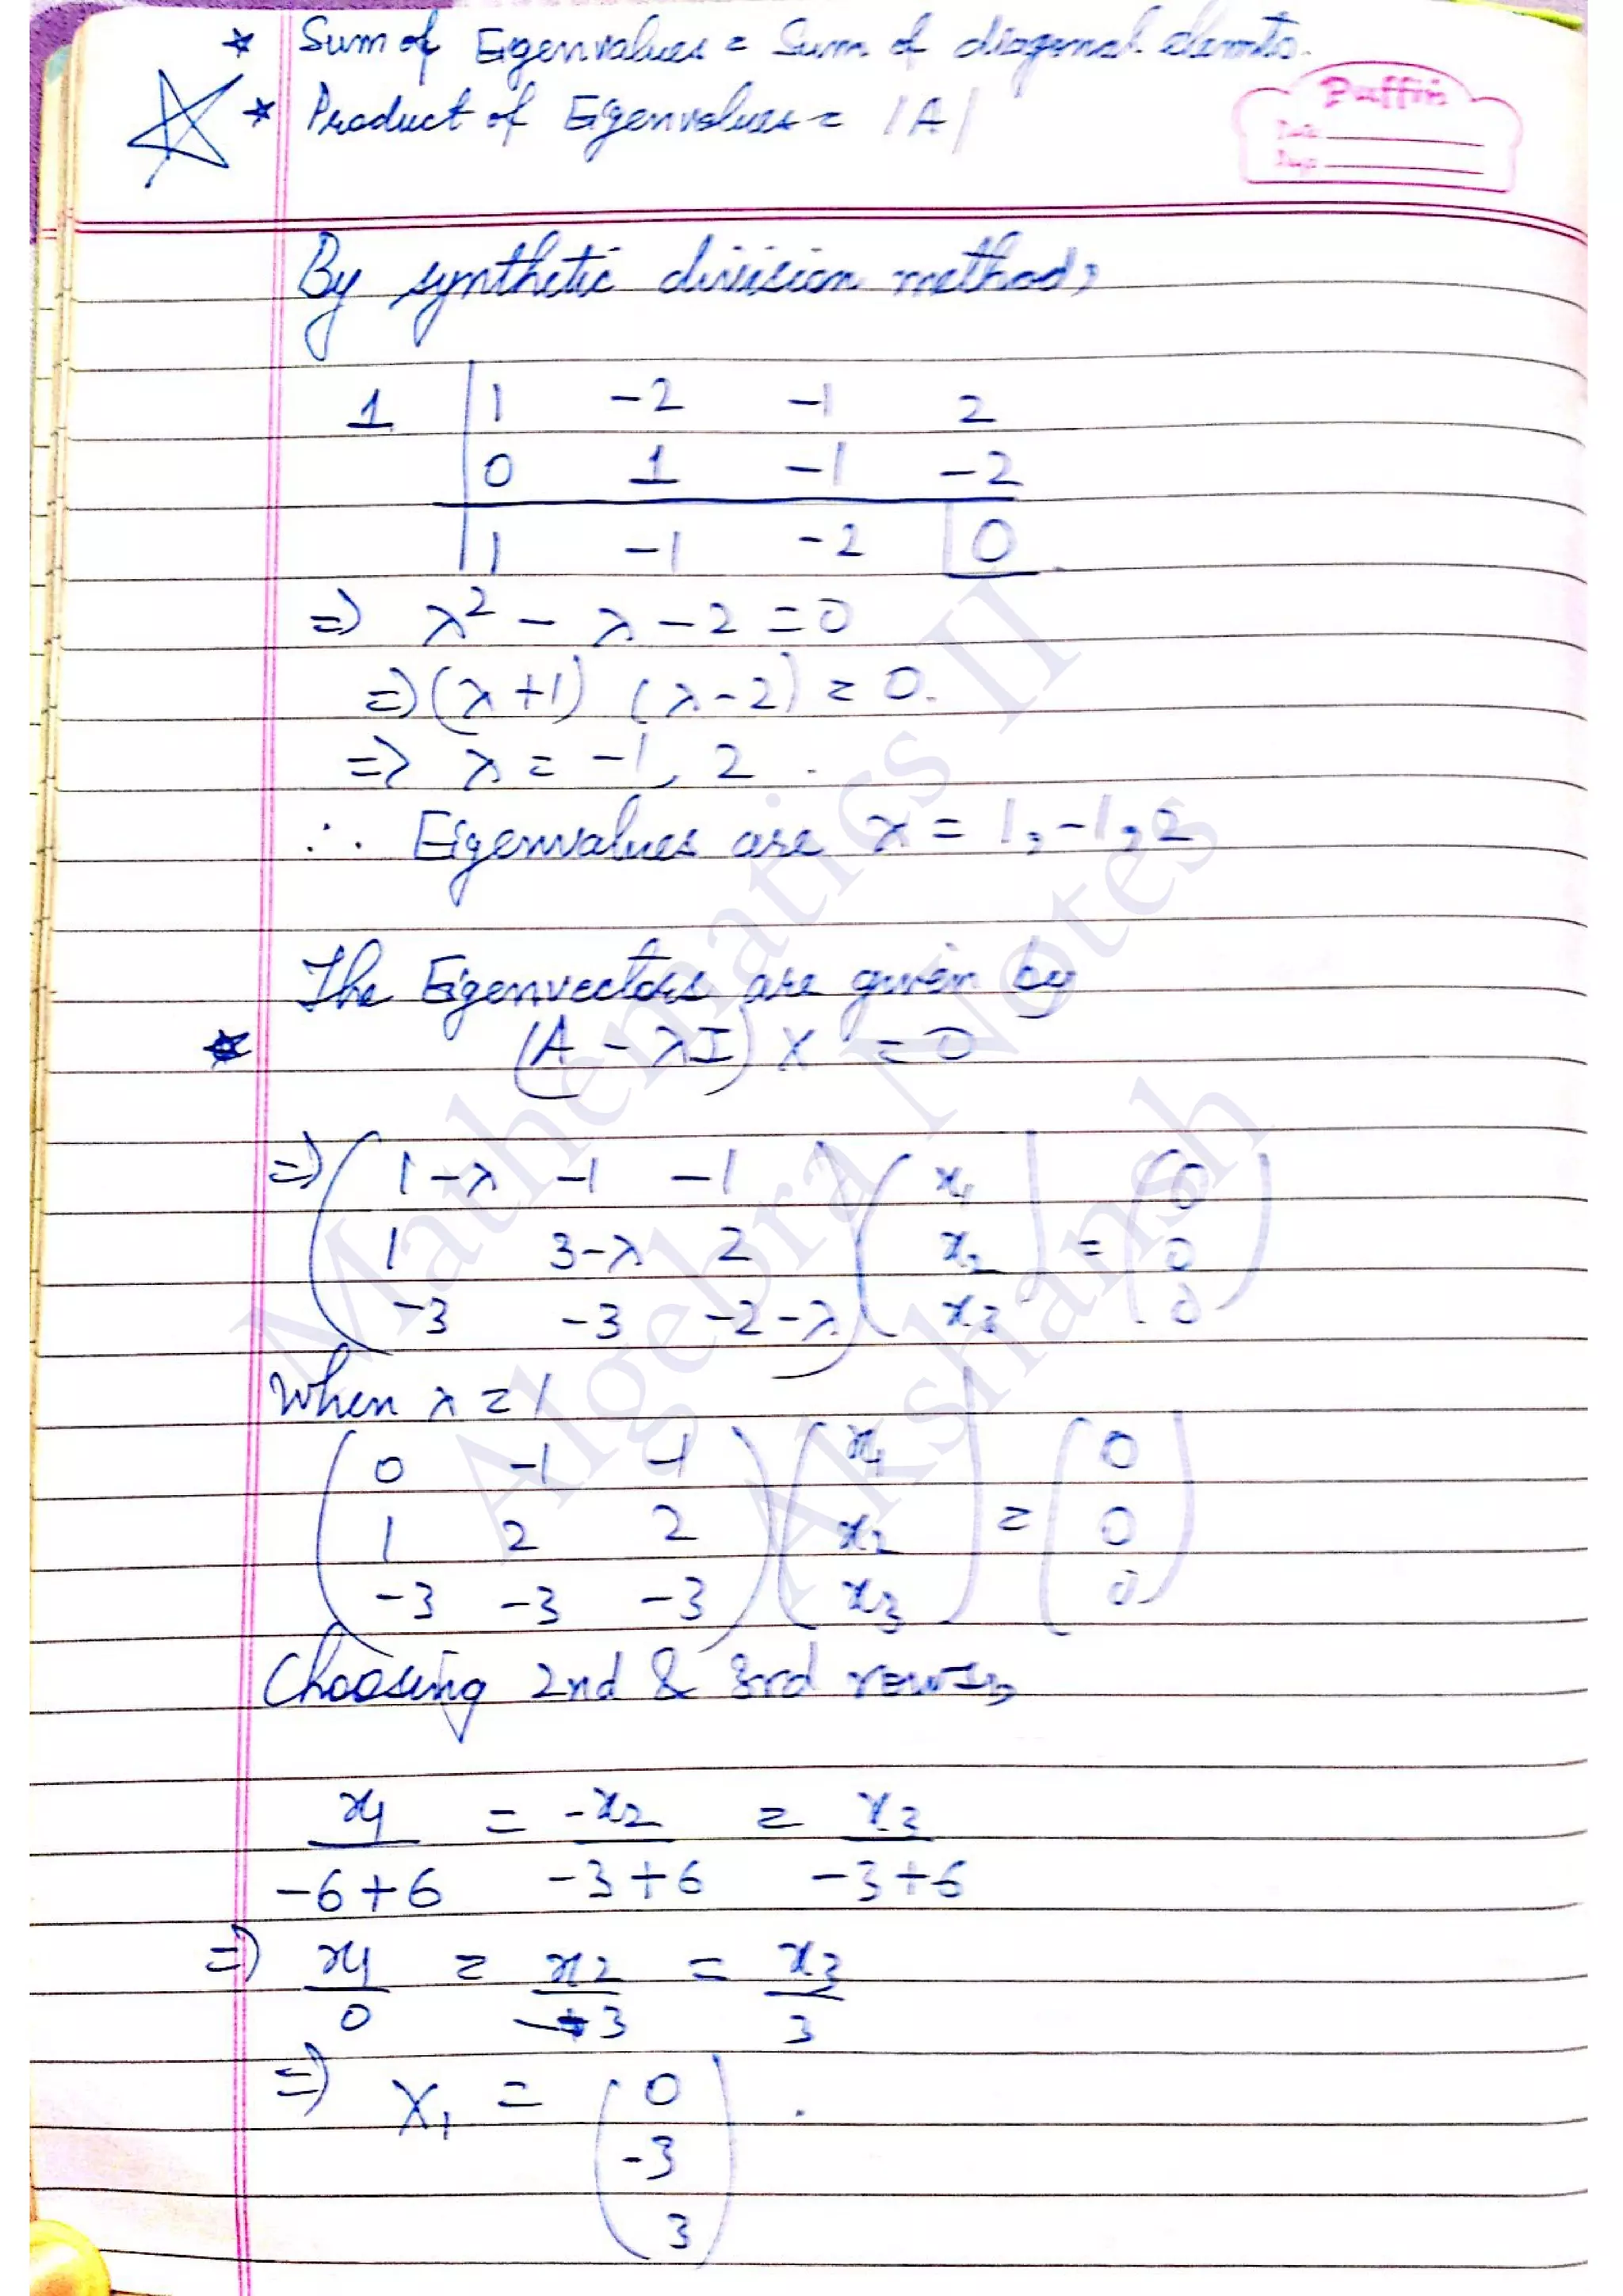 * Sum of Eigenvalues = Sum of diagonal elements.
* Product of Eigenvalues = |A|
Puffin
Date
Page
By synthetic division method,
1 | 1 -2 -1 2
0 1 -1 -2
1 -1 -2 | 0
=> λ² - λ - 2 = 0
=> (λ+1) (λ-2) = 0.
=> λ = -1, 2.
∴ Eigenvalues are λ = 1, -1, 2
The Eigenvectors are given by
* (A - λI) X = 0
=> ( 1-λ -1 -1 ) ( x₁ ) ( 0 )
( 1 3-λ 2 ) ( x₂ ) = ( 0 )
( -3 -3 -2-λ ) ( x₃ ) ( 0 )
When λ = 1
( 0 -1 -1 ) ( x₁ ) ( 0 )
( 1 2 2 ) ( x₂ ) = ( 0 )
( -3 -3 -3 ) ( x₃ ) ( 0 )
Choosing 2nd & 3rd rows,
x₁/(-6+6) = -x₂/(-3+6) = x₃/(-3+6)
=> x₁/0 = x₂/-3 = x₃/3
=> X₁ = ( 0 ) .
( -3 )
( 3 )
Mathematics II
Algebra Notes
Akshansh